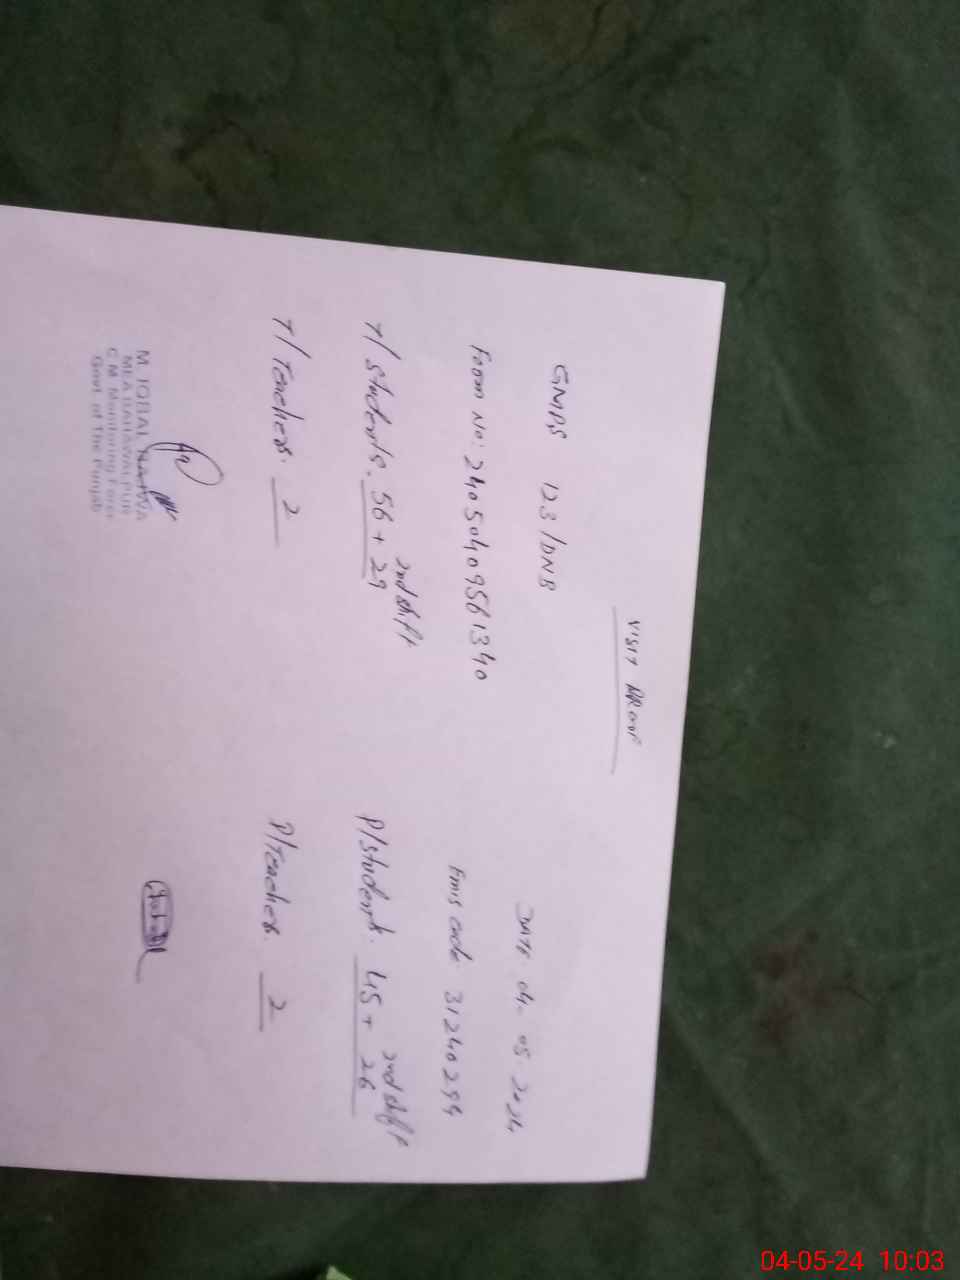 VISIT PROOF
GMPS 123/DNB
DATE. 04-05-2024
Form No: 24050409561340
Emis code 31240299
2nd shift
T/Students. 56 + 29
2nd shift
P/Students. 45 + 26
T/Teachers. 2
P/Teachers. 2
M. IQBAL
MEA BAHAWALPUR
C.M Monitoring Force
Govt of The Punjab
04-05-24 10:03